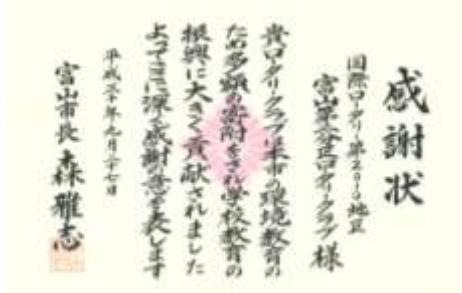 感謝状
国際ロータリー第2610地区
富山第 ロータリークラブ 様
貴ロータリークラブは本市の環境教育の
ため多額の寄附をされ学校教育の
振興に大きく貢献されました
よってここに深く感謝の意を表します
平成二十年九月二十七日
富山市長 森雅志